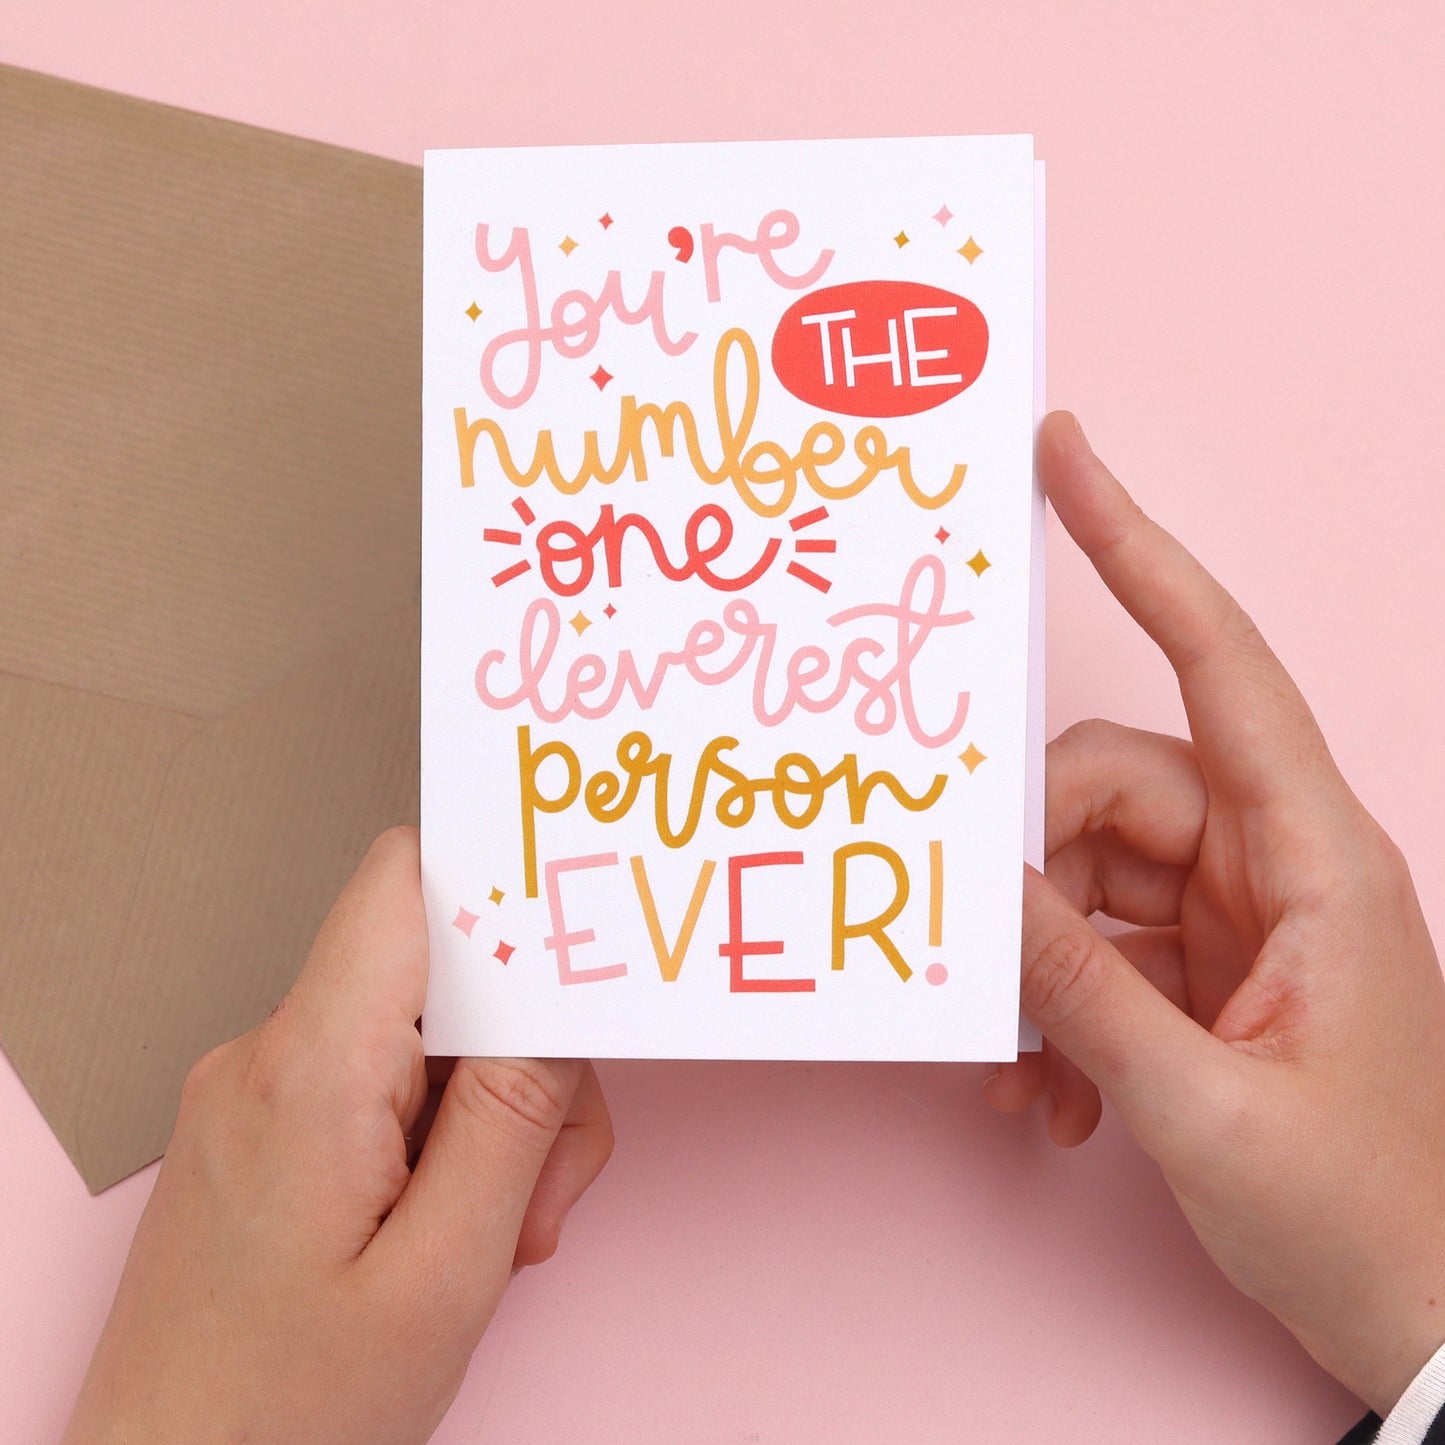 you're
THE
number
one
cleverest
person
EVER!